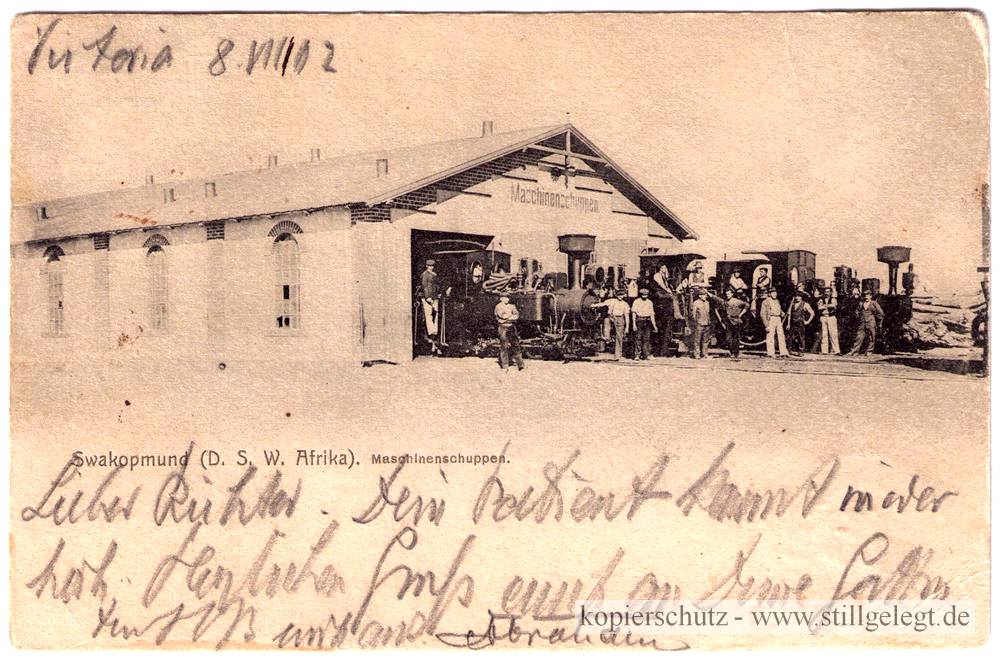 Victoria 8. VIII 02
Maschinenschuppen.
Swakopmund (D. S. W. Afrika). Maschinenschuppen.
Lieber Richter. Dein Patient kommt wieder
hoch. Herzlichen Gruß auch an Deine Gattin
Abraham
kopierschutz - www.stillgelegt.de